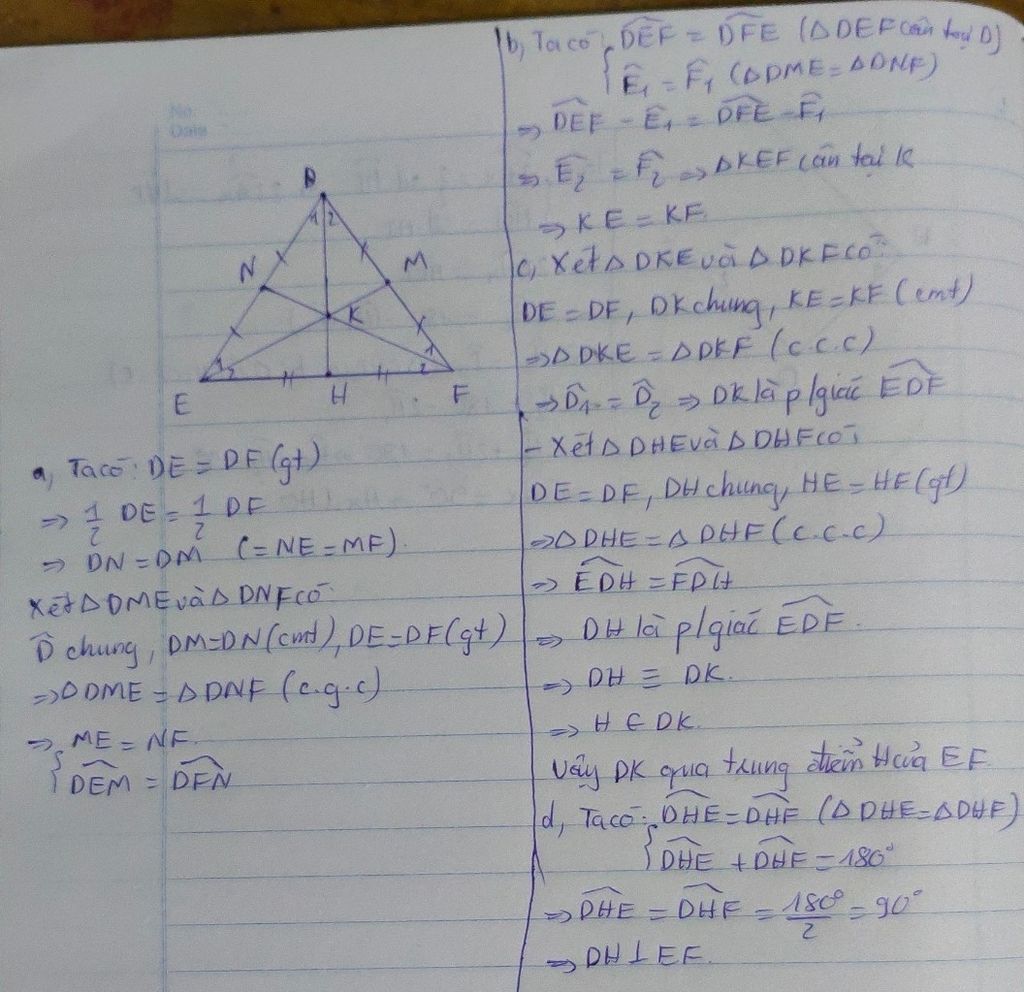 No
Date
D
1 2
N
M
K
1
2
1
2
E
H
F
a, Ta có: DE = DF (gt)
⇒ 1/2 DE = 1/2 DF
⇒ DN = DM (= NE = MF).
Xét Δ DME và Δ DNF có:
D̂ chung, DM = DN (cmt), DE = DF (gt)
⇒ Δ DME = Δ DNF (c.g.c)
⇒ { ME = NF.
DEM̂ = DFN̂
b, Ta có: { DEF̂ = DFÊ (Δ DEF cân tại D)
Ê₁ = F̂₁ (Δ DME = Δ DNF)
⇒ DEF̂ - Ê₁ = DFÊ - F̂₁
⇒ Ê₂ = F̂₂ ⇒ Δ KEF cân tại K
⇒ KE = KF.
c, Xét Δ DKE và Δ DKF có:
DE = DF, DK chung, KE = KF (cmt)
⇒ Δ DKE = Δ DKF (c.c.c)
⇒ D̂₁ = D̂₂ ⇒ DK là p/giác EDF̂
- Xét Δ DHE và Δ DHF có:
DE = DF, DH chung, HE = HF (gt)
⇒ Δ DHE = Δ DHF (c.c.c)
⇒ EDĤ = FDĤ
⇒ DH là p/giác EDF̂.
⇒ DH ≡ DK.
⇒ H ∈ DK.
Vậy DK qua trung điểm H của EF
d, Ta có: { DHÊ = DHF̂ (Δ DHE = Δ DHF)
DHÊ + DHF̂ = 180°
⇒ DHÊ = DHF̂ = 180°/2 = 90°
⇒ DH ⊥ EF.